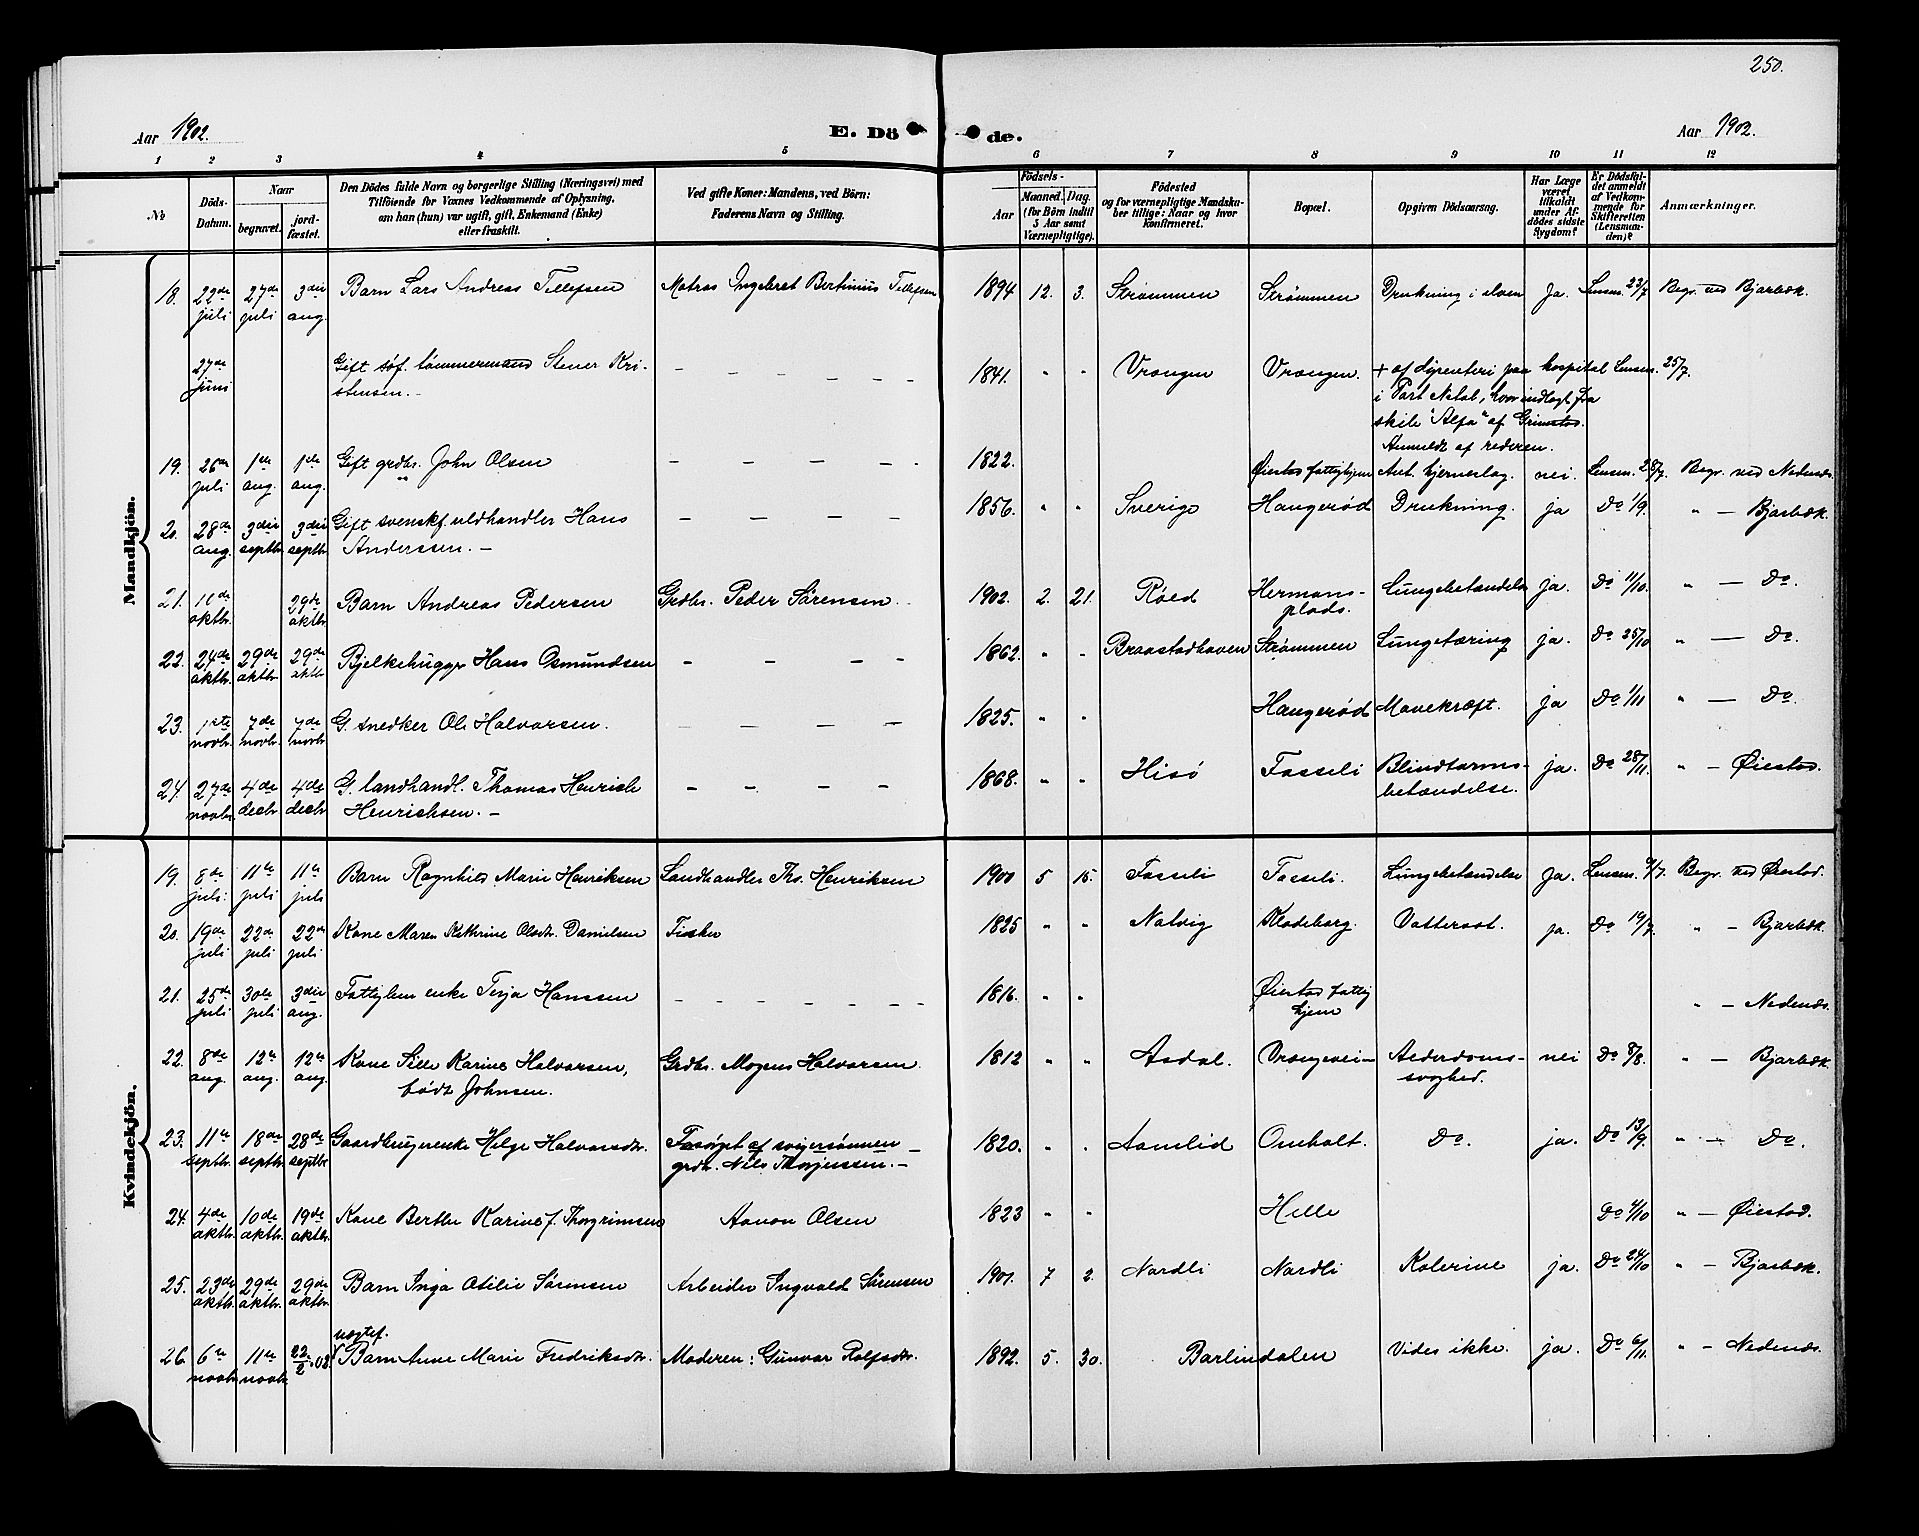 250.
Aar 1902. E. Dö de. Aar 1902.
1 2 3 4 5 6 7 8 9 10 11 12
No
Döds-Datum.
Naar
begravet.
jord-fæstet.
Den Dödes fulde Navn og borgerlige Stilling (Næringsvei) med
Tilföiende for Voxnes Vedkommende af Oplysning,
om han (hun) var ugift, gift, Enkemand (Enke)
eller fraskilt.
Ved gifte Koner: Mandens, ved Börn:
Faderens Navn og Stilling.
Födsels-
Aar
Maaned. Dag.
(for Börn indtil
5 Aar samt
Værnepligtige).
Födested
og for værnepligtige Mandska-
ber tillige: Naar og hvor
konfirmeret.
Bopæl.
Opgiven Dödsaarsag.
Har Læge
været
tilkaldt
under Af-
dödes sidste
Sygdom?
Er Dödsfal-
det anmeldt
af Vedkom-
mende for
Skifteretten
(Lensman-
den)?
Anmærkninger.
Mandkjön.
18. 22de juli 27de juli 3die aug. Barn Lars Andreas Tellefsen Matros Ingebret Bertinius Tellefsen 1894 12. 3. Strømmen Strømmen Drukning i elven Ja. Lensm. 23/7 Begr. ved Bjorbæk.
27de juni Gift søf. tømmermand Stener Kri-
stensen. – – – – – – – 1841. " " Vrængen Vrængen. + af dysenteri paa hospital Lensm. 25/7.
i Port Natal, hvor indlagt fra
skib "Alfa" af Grimstad.
Anmeldt af rederen.
19. 26de juli 1ste aug. 1ste aug. Gift grdbr. John Olsen – – – – 1822. Øiestad fattighjem Ant. hjerneslag. nei. Lensm. 28/7. Begr. ved Nedenæs.
20. 28de aug. 3die septbr. 3die septbr. Gift svensk uldhandler Hans
Anderssen. – – – – – 1856. " " Sverige Haugerød Drukning. ja Do 1/9. " – Bjorbæk.
21. 10de oktbr. 29de oktbr. Barn Andreas Pedersen Grdbr. Peder Sørensen. 1902. 2. 21. Roed Hermans-
plads. Lungebetændelse ja. Do 11/10. " – Do.
22. 24de oktbr. 29de oktbr. 29de oktbr. Bjelkehugger Hans Osmundsen – – – – 1862. " " Braastadhaven Strømmen Lungetæring ja. Do 25/10 " – Do.
23. 1ste novbr. 7de novbr. 7de novbr. G. snedker Ole Halvorsen. – – – – 1825. " " Haugerød Mavekræft. ja Do 1/11 " – Do.
24. 27de novbr. 4de decbr. 4de decbr. G. landhandl. Thomas Henrich
Henrichsen. – – – – – 1868. " " Hisø Fosseli Blindtarms-
betændelse. ja. Do 28/11. " – Øiestad.
Kvindekjön.
19. 8de juli. 11te juli 11te juli Barn Ragnhild Marie Henriksen Landhandler Ths. Henriksen 1900 5 15. Fosseli Fosseli. Lungebetændelse Ja. Lensm. 9/7. Begr. ved Øiestad.
20. 19de juli 22de juli 22de juli Kone Maren Kathrine Olsdtr. Danielsen Fisker 1825 " " Natvig Klodeborg. Vattersot. ja. Do 19/7. " – Bjorbæk.
21. 25de juli 30te juli 3die aug. Fattiglem enke Terja Hanssen – – – – – – 1816. " " Øiestad fattig
hjem " – Nedenæs.
22. 8de aug. 12te aug. 12te aug. Kone Sille Karine Halvorsen,
født Johnsen. Grdbr. Mogens Halvorsen. 1812 " " Asdal. Vrængevei – Alderdoms-
svaghed. nei Do 8/8. " – Bjorbæk.
23. 11te septbr. 18de septbr. 28de septbr. Gaardbrugerenke Helge Halvorsdtr. Forsørget af svigersønnen –
grdbr. Nils Thorjussen. – 1820. " " Aamlid Omholt. Do. ja. Do 13/9. " – Do.
24. 4de oktbr. 10de oktbr. 19de oktbr. Kone Berthe Karine f. Thorgrimsen Aanon Olsen 1823 " " Helle Do 4/10 " – Øiestad.
25. 23de oktbr. 29de oktbr. 29de oktbr. Barn Inga Otilie Sørensen Arbeider Ingvald Sørensen 1901. 7 2. Nordli Nordli Kolerine ja. Do 24/10 " – Bjorbæk.
26. 6te novbr. 11te novbr. 22/2 03 uægtef.
Barn Anne Marie Fredriksdtr. Moderen: Gunvor Rolfsdtr. 1892. 5. 30. Barlindalen Vides ikke. ja. Do 6/11. " – Nedenæs.